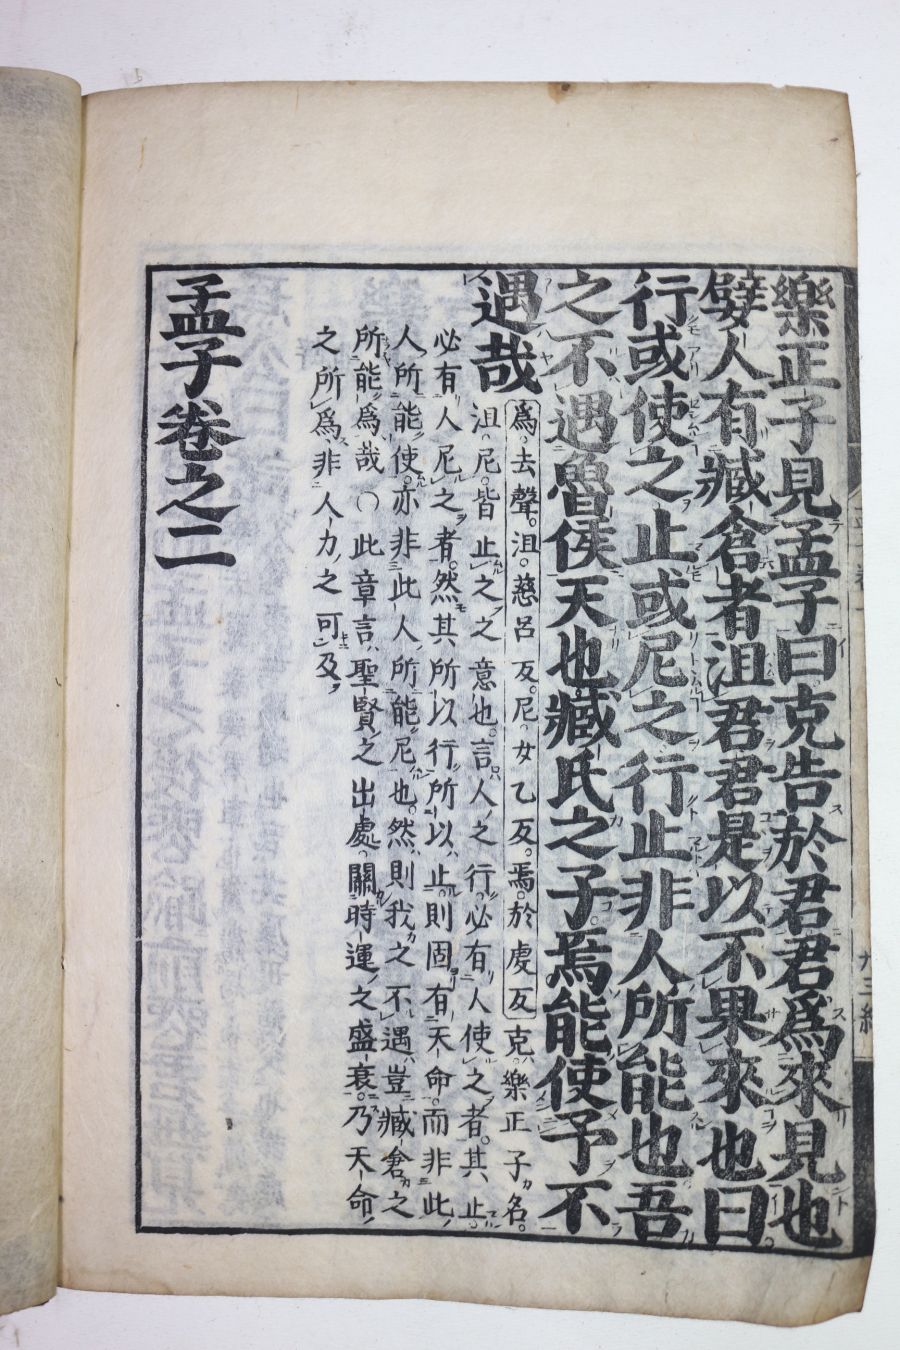 樂正子見孟子曰克告於君君爲來見也
嬖人有臧倉者沮君君是以不果來也曰
行或使之止或尼之行止非人所能也吾
之不遇魯侯天也臧氏之子焉能使予不
遇哉
爲去聲。沮。慈呂反。尼。女乙反。焉。於虔反 克。樂正子名。
沮。尼。皆止之之意也。言人之行。必有人使之者。其止。
必有人尼之者。然其所以行。所以止。則固有天命。而非此
人所能使。亦非此人所能尼也。然則我之不遇。豈臧倉之
所能爲哉 〇 此章言。聖賢之出處。關時運之盛衰。乃天命
之所爲。非人力之可及
孟子卷之二